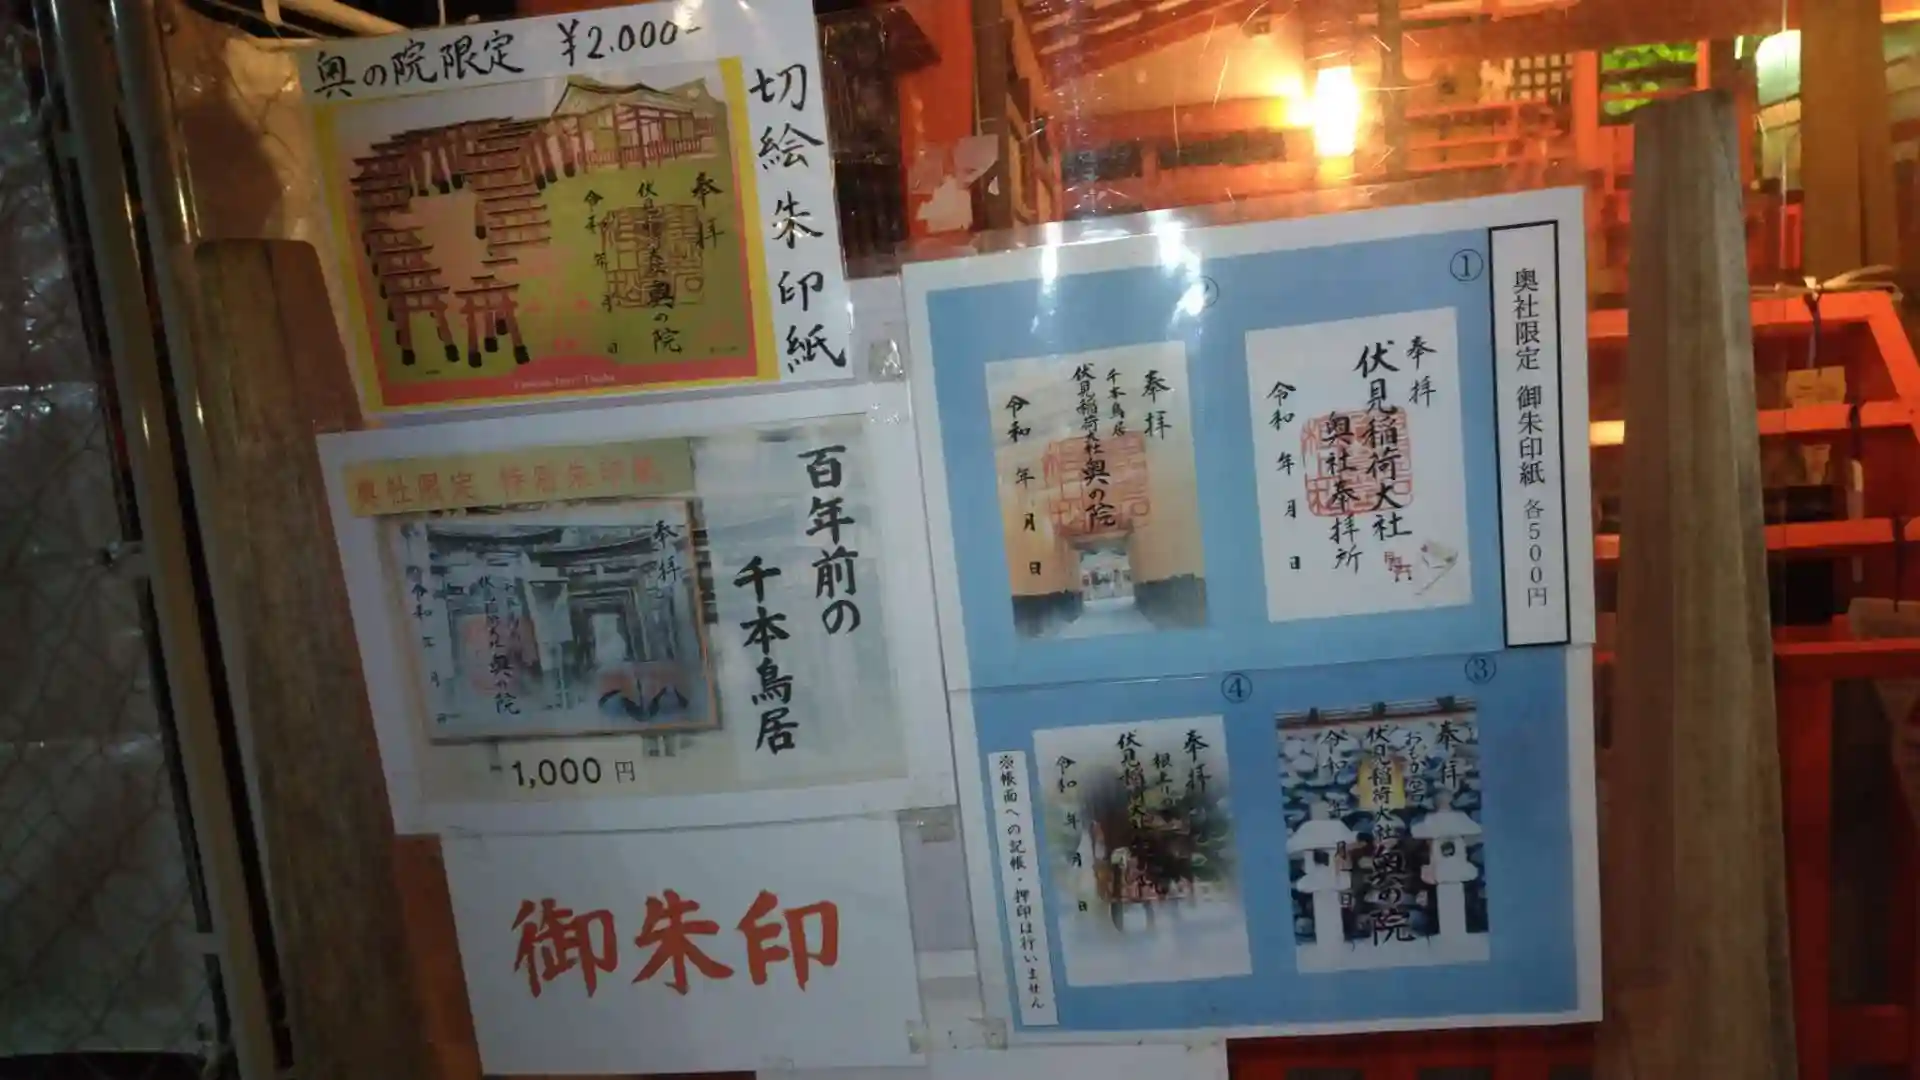 奥の院限定 ¥2.000-
切絵朱印紙
奉拝
伏見稲荷大社 奥の院
令和 年 月 日
奥社限定 特別朱印紙
百年前の
千本鳥居
奉拝
千本鳥居
伏見稲荷大社 奥の院
令和 年 月 日
1,000円
御朱印
奥社限定 御朱印紙 各500円
①
奉拝
伏見稲荷大社
奥社奉拝所
令和 年 月 日
②
奉拝
千本鳥居
伏見稲荷大社 奥の院
令和 年 月 日
③
奉拝
おもかる石
伏見稲荷大社 奥の院
令和 年 月 日
④
奉拝
根上りの
伏見稲荷大社
令和 年 月 日
※帳面への記帳・押印は行いません